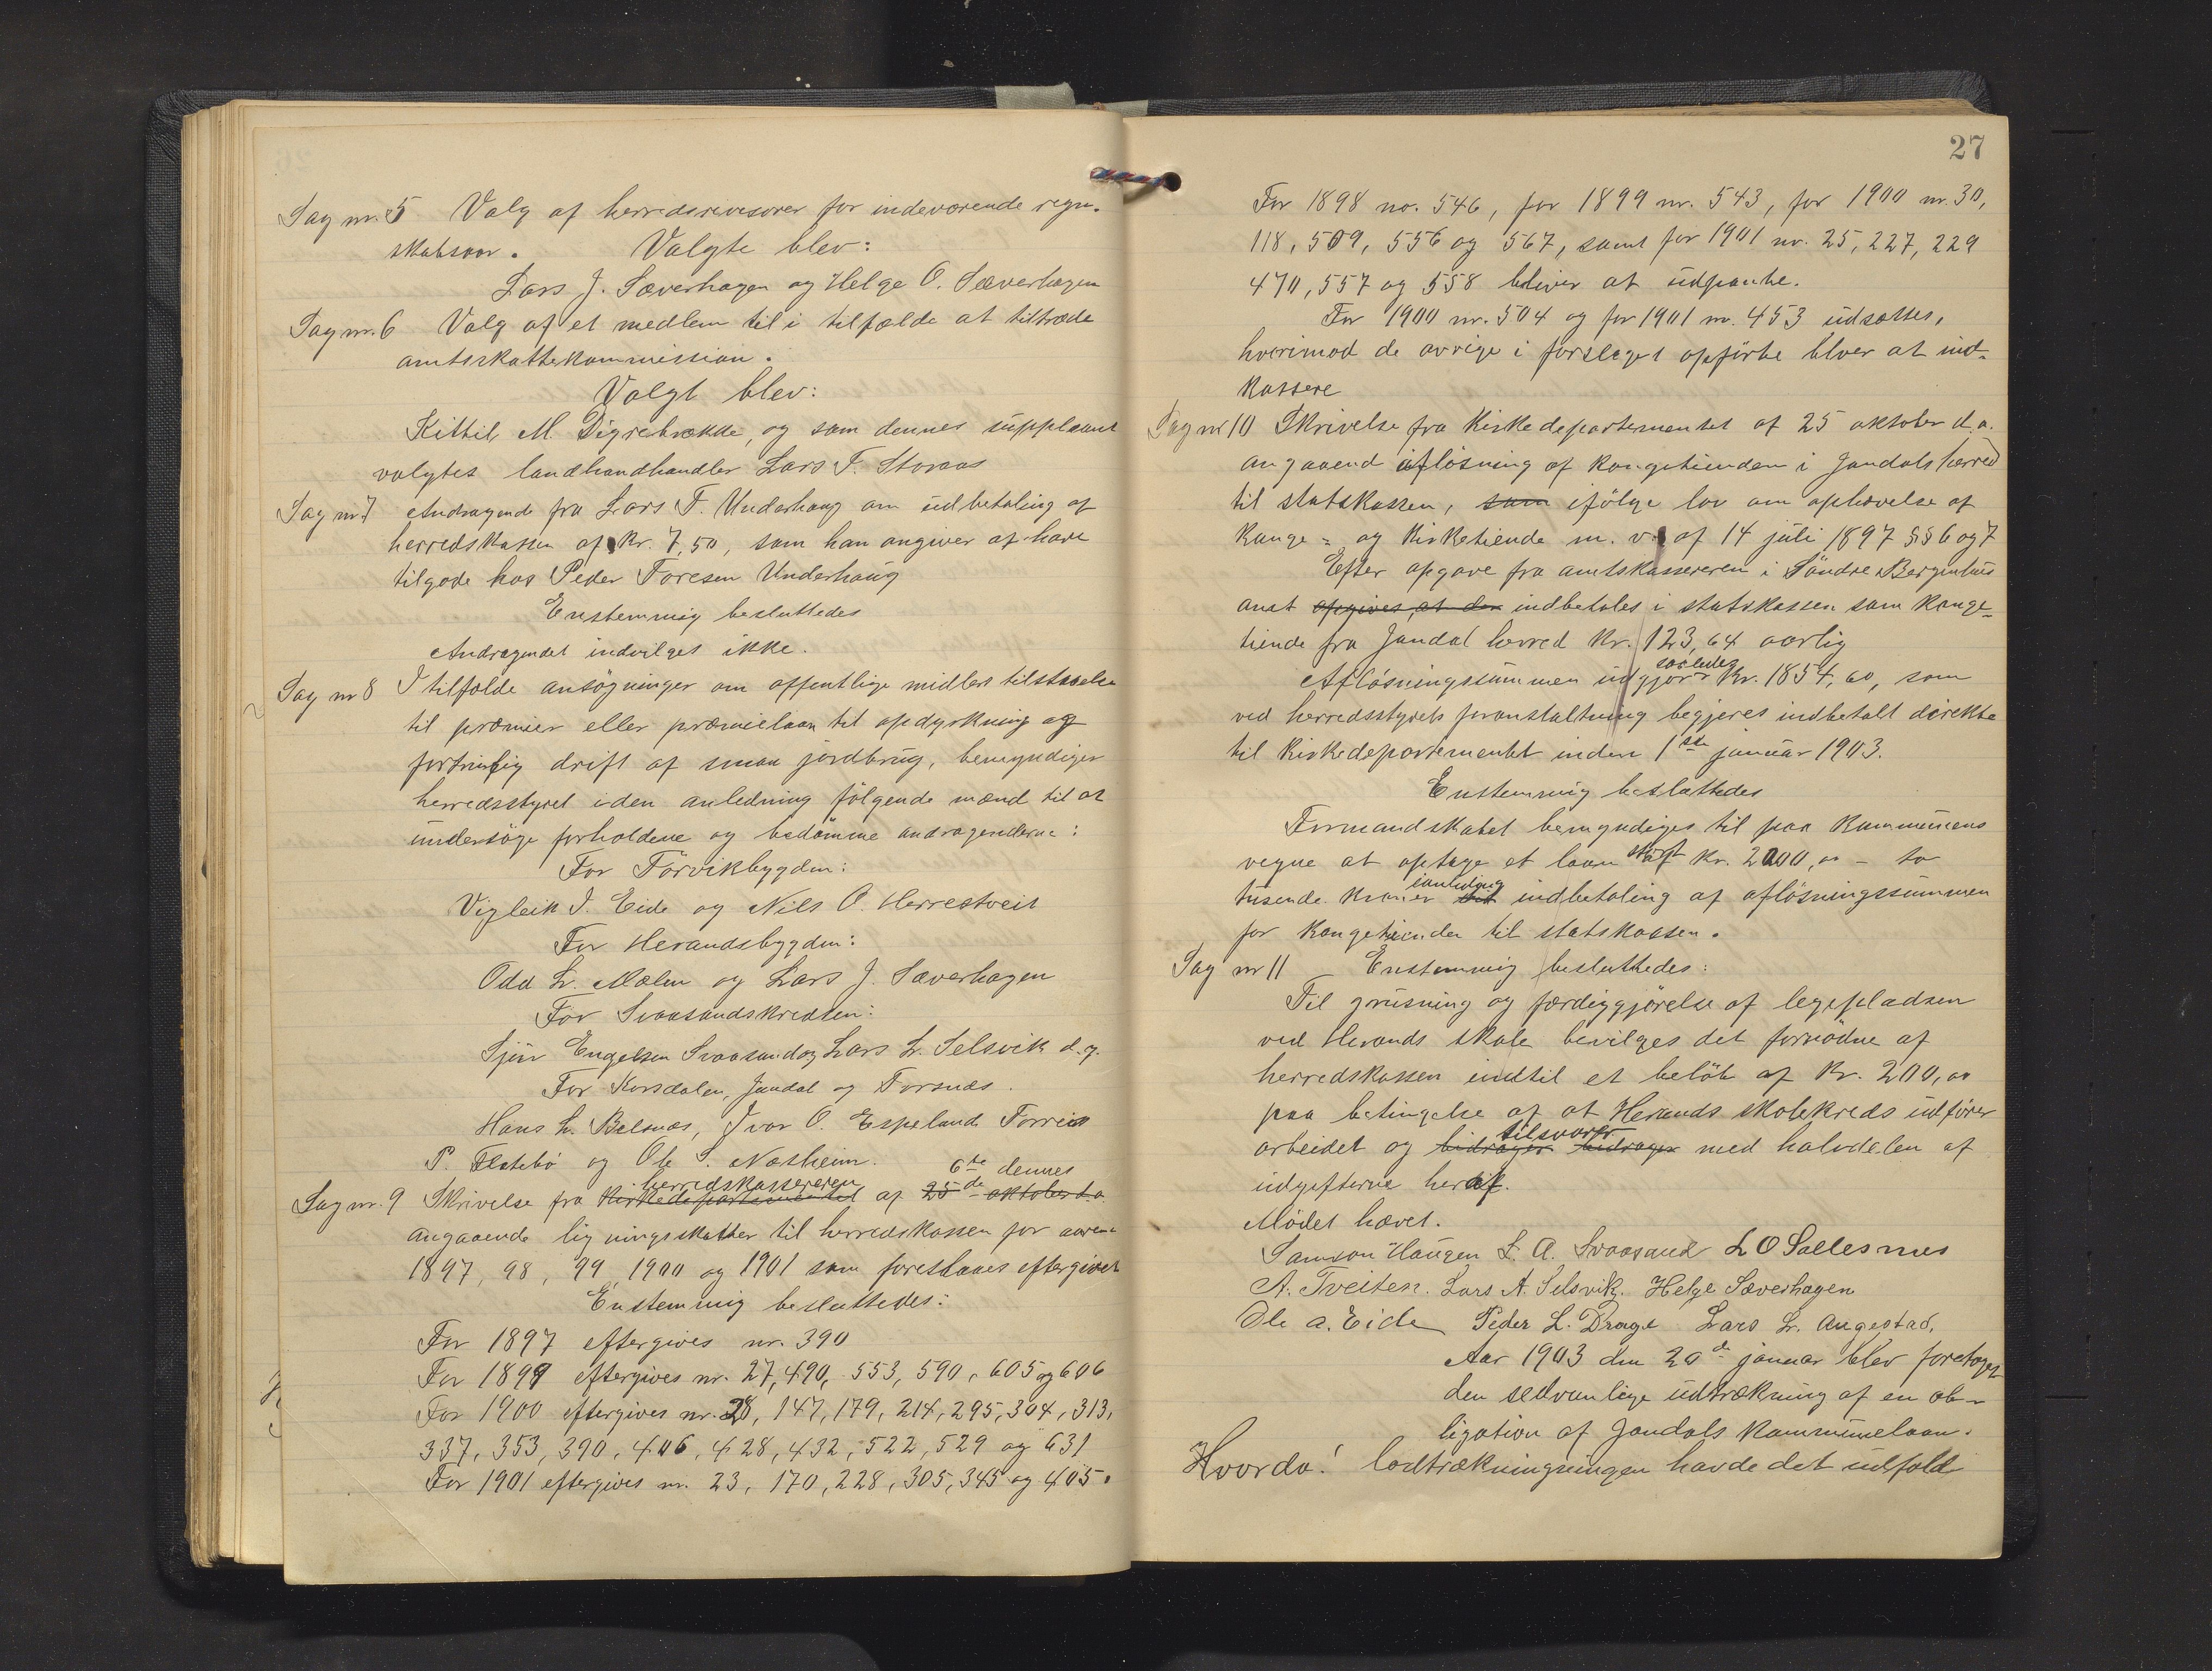 Sag nr. 5 Valg af herredsrevisorer for indeværende regn-
skabsaar. Valgte blev:
Lars J. Sæverhagen og Helge O. Sæverhagen
Sag nr. 6 Valg af et medlem til i tilfælde at tiltræde
amtsskattekommission.
Valgt blev:
Kittil M. Digrebrække, og som dennes suppleant
valgtes landhandhandler Lars T. Storaas
Sag nr 7 Andragende fra Lars T. Underhaug om udbetaling af
herredskassen af kr. 7,50, som han angiver at have
tilgode hos Peder Toresen Underhaug
Enstemmig besluttedes
Andragendet indvilges ikke.
Sag nr 8 I tilfælde ansøgninger om offentlige midlers tilstaaelse
til præmier eller præmielaan til opdyrkning og
fortrinlig drift af smaa jordbrug, bemyndiger
herredsstyret i den anledning følgende mænd til at
undersøge forholdene og bedømme andragenderne:
For Törvikbygden:
Vigleik J. Eide og Nils O. Herrestveit
For Herandsbygden:
Odd L. Mælen og Lars J. Sæverhagen
For Svaasandskredsen:
Sjur Engelsen Svaasand og Lars L. Selsvik d.y.
For Korsdalen, Jondal og Torsnæs.
Hans L. Belsnæs, Ivar O. Espeland Torreis
P. Flatebö og Ole S. Næsheim. 6te dennes
herredskassereren
Sag nr. 9 Skrivelse fra Kirkedepartementet af 25de oktober d.a.
angaaende ligningsskatter til herredskassen for aarene
1897, 98, 99, 1900 og 1901 som foreslaaes eftergivet
Enstemmig besluttedes:
For 1897 eftergives nr. 390
For 1899 eftergives nr. 27, 490, 553, 590, 605 og 606
For 1900 eftergives nr. 28, 147, 179, 214, 295, 304, 313,
337, 353, 390, 406, 428, 432, 522, 529 og 631
For 1901 eftergives nr. 23, 170, 228, 305, 345 og 405.
27
For 1898 no. 546, for 1899 nr. 543, for 1900 nr. 30,
118, 509, 556 og 567, samt for 1901 nr. 25, 227, 229
470, 557 og 558 bliver at udpante.
For 1900 nr. 504 og for 1901 nr. 453 udsættes,
hverimod de øvrige i forslaget opførte blver at ind-
kassere
Sag nr 10 Skrivelse fra Kirkedepartementet af 25 oktober d.a.
angaaend afløsning af kongetienden i Jondals herred
til statskassen, som ifølge lov om ophævelse af
Konge- og Kirketiende m. v. af 14 juli 1897 §§ 6 og 7
Efter opgave fra amtskassereren i Søndre Bergenhus
amt opgives, at der indbetales i statskassen som konge-
tiende fra Jondal herred kr. 123,64 aarlig
saaledes
Afløsningssummen udgjør kr. 1854,60, som
ved herredsstyrets foranstaltning begjeres indbetalt direkte
til Kirkedepartementet inden 1ste januar 1903.
Enstemmig besluttedes
Formandskabet bemyndiges til paa kommunens
vegne at optage et laan stort kr. 2000,00 - to
ianledning
tusende kroner til indbetaling af afløsningssummen
for kongetienden til statskassen.
Sag nr 11 Enstemmig besluttedes:
Til grusning og færdiggjørelse af legepladsen
ved Herands skole bevilges det fornødne af
herredskassen indtil et beløb af kr. 200,00
paa betingelse af at Herands skolekreds udfører
tilsvarer
arbeidet og bidrager bidrager med halvdelen af
udgifterne heraf.
Mødet hævet.
Samson Haugen L. A. Svaasand L O Sollesnes
A. Tveiten. Lars A. Selsvik. Helge Sæverhagen
Ole A. Eide Peder L. Drage Lars L. Augestad.
Aar 1903 den 20de januar blev foretaget
den sedvanlige udtrækning af en ob-
ligation af Jondals kommunelaan.
Hvorda! lodtrækningningen havde det udfald